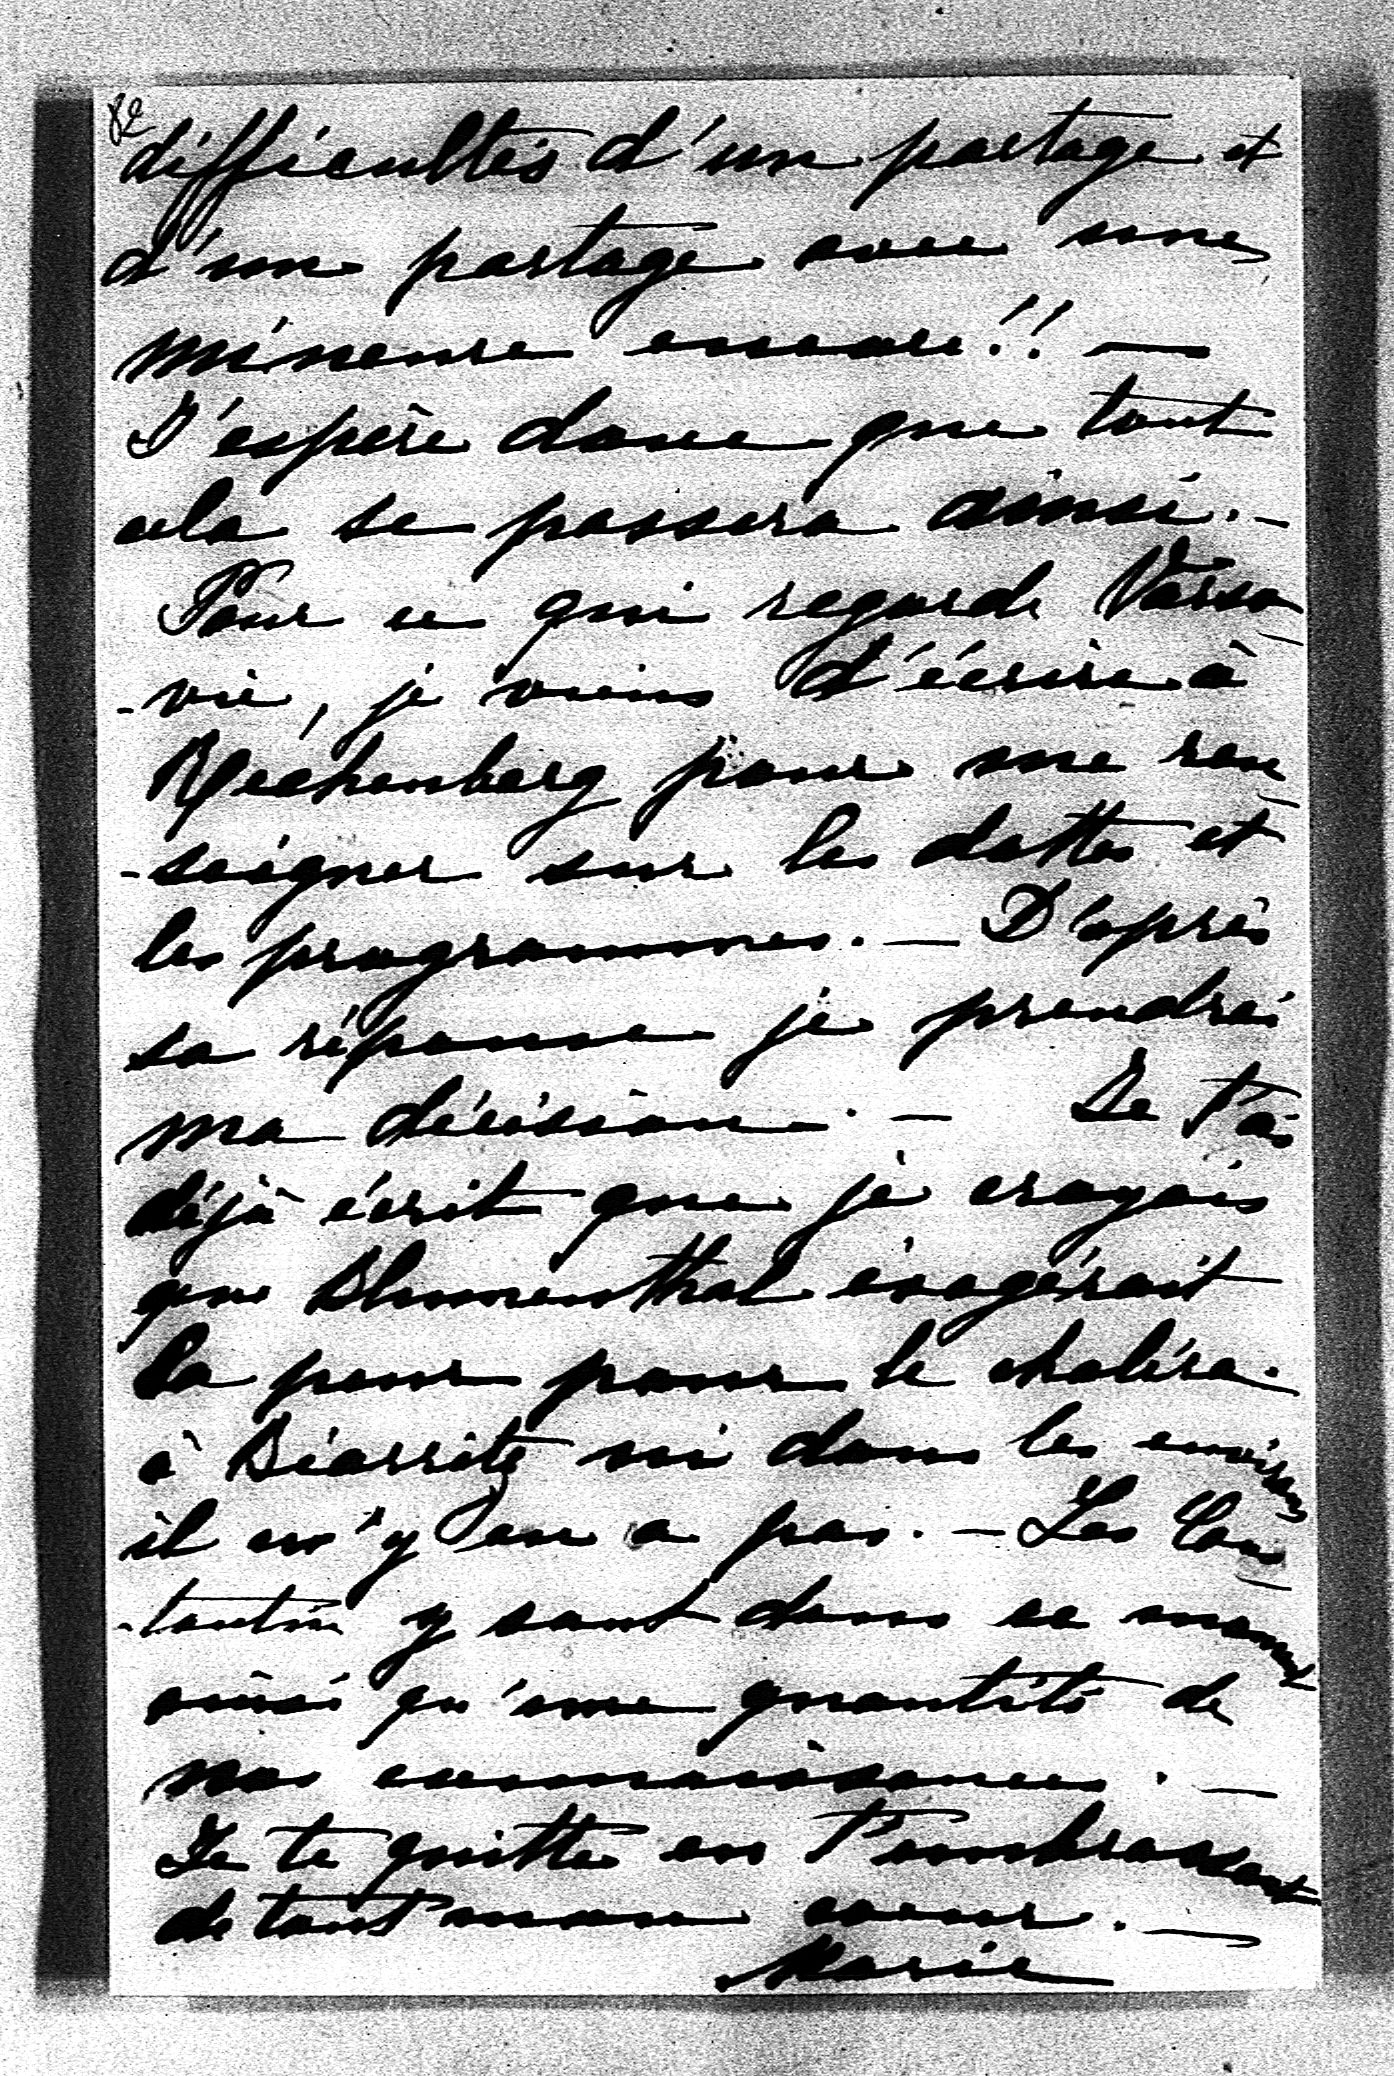 82
difficultés d'un partage et
d'un partage avec une
mineure encore!! —
J'espère donc que tout
cela se passera ainsi. —
Pour ce qui regarde Varso
-vie, je viens d'écrire à
Rechenberg pour me ren
-seigner sur les dattes et
les programmes. — D'après
sa réponse je prendrai
ma décision. — Je t'ai
déjà écrit que je croyais
que Blumenthal exagérait
la peur pour le choléra.
à Biarritz ni dans les environs
il n'y en a pas. — Les Cons
-tantin y sont dans ce moment
ainsi qu'une quantité de
nos connaissances. —
Je te quitte en t'embrassant
de tout mon coeur. —
Marie